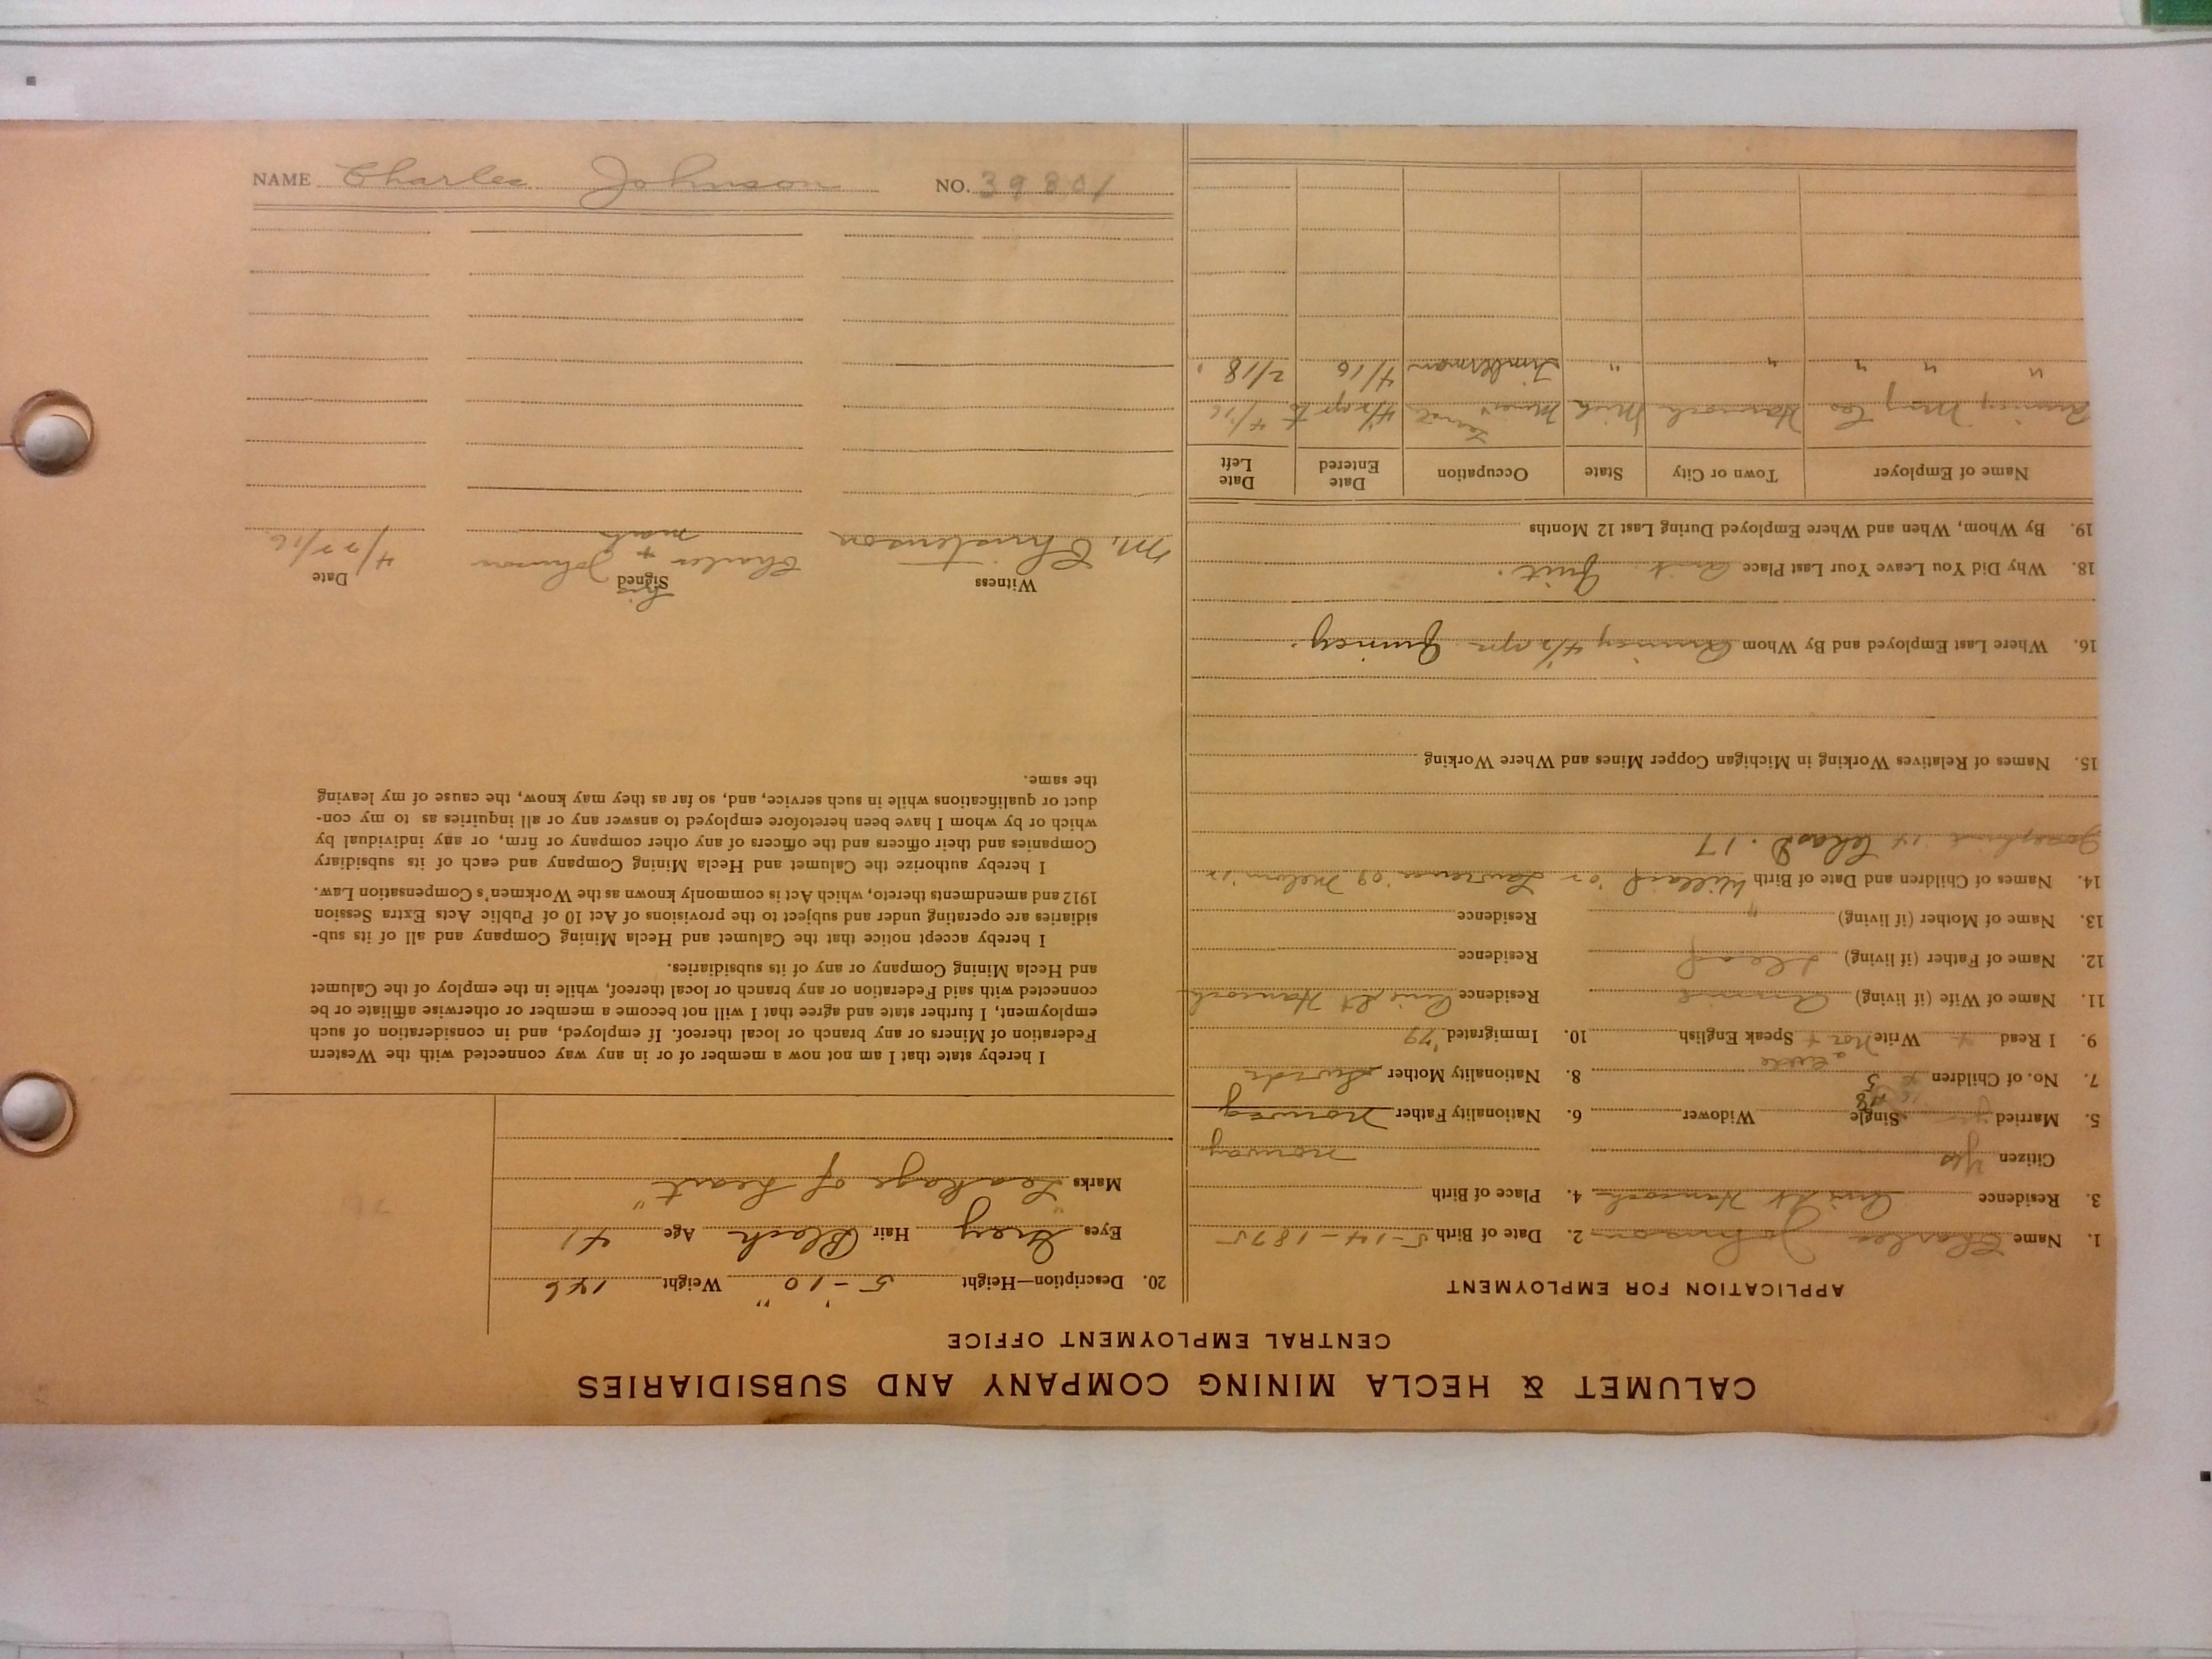 CALUMET & HECLA MINING COMPANY AND SUBSIDIARIES
CENTRAL EMPLOYMENT OFFICE
APPLICATION FOR EMPLOYMENT
1. Name Charles Johnson 2. Date of Birth 5-14-1875
3. Residence Hancock 4. Place of Birth
Citizen Yes Norway
5. Married Single Widower 6. Nationality Father Norway
7. No. of Children 5 8. Nationality Mother Swede
a little
9. I Read Write Nor + Speak English 10. Immigrated '79
11. Name of Wife (if living) Residence Hancock
12. Name of Father (if living) Dead Residence
13. Name of Mother (if living) " Residence
14. Names of Children and Date of Birth Willard Lawrence '09 Melvin '12
Josephine 14 Chas D. 17
15. Names of Relatives Working in Michigan Copper Mines and Where Working
16. Where Last Employed and By Whom Quincy Quincy.
18. Why Did You Leave Your Last Place Quit. Quit.
19. By Whom, When and Where Employed During Last 12 Months
Name of Employer Town or City State Occupation Date Entered Date Left
Quincy Mng Co Hancock Mich 4/16
" " " " " Timberman 4/16 2/18.
20. Description—Height 5'-10" Weight 146
Eyes Grey Hair Black Age 41
Marks "Leakage of heart"
I hereby state that I am not now a member of or in any way connected with the Western
Federation of Miners or any branch or local thereof. If employed, and in consideration of such
employment, I further state and agree that I will not become a member or otherwise affiliate or be
connected with said Federation or any branch or local thereof, while in the employ of the Calumet
and Hecla Mining Company or any of its subsidiaries.
I hereby accept notice that the Calumet and Hecla Mining Company and all of its sub-
sidiaries are operating under and subject to the provisions of Act 10 of Public Acts Extra Session
1912 and amendments thereto, which Act is commonly known as the Workmen's Compensation Law.
I hereby authorize the Calumet and Hecla Mining Company and each of its subsidiary
Companies and their officers and the officers of any other company or firm, or any individual by
which or by whom I have been heretofore employed to answer any or all inquiries as to my con-
duct or qualifications while in such service, and, so far as they may know, the cause of my leaving
the same.
Witness Signed Date
his
M. Christenson Charles + Johnson 4/27/16
mark
NAME Charles Johnson NO. 39801